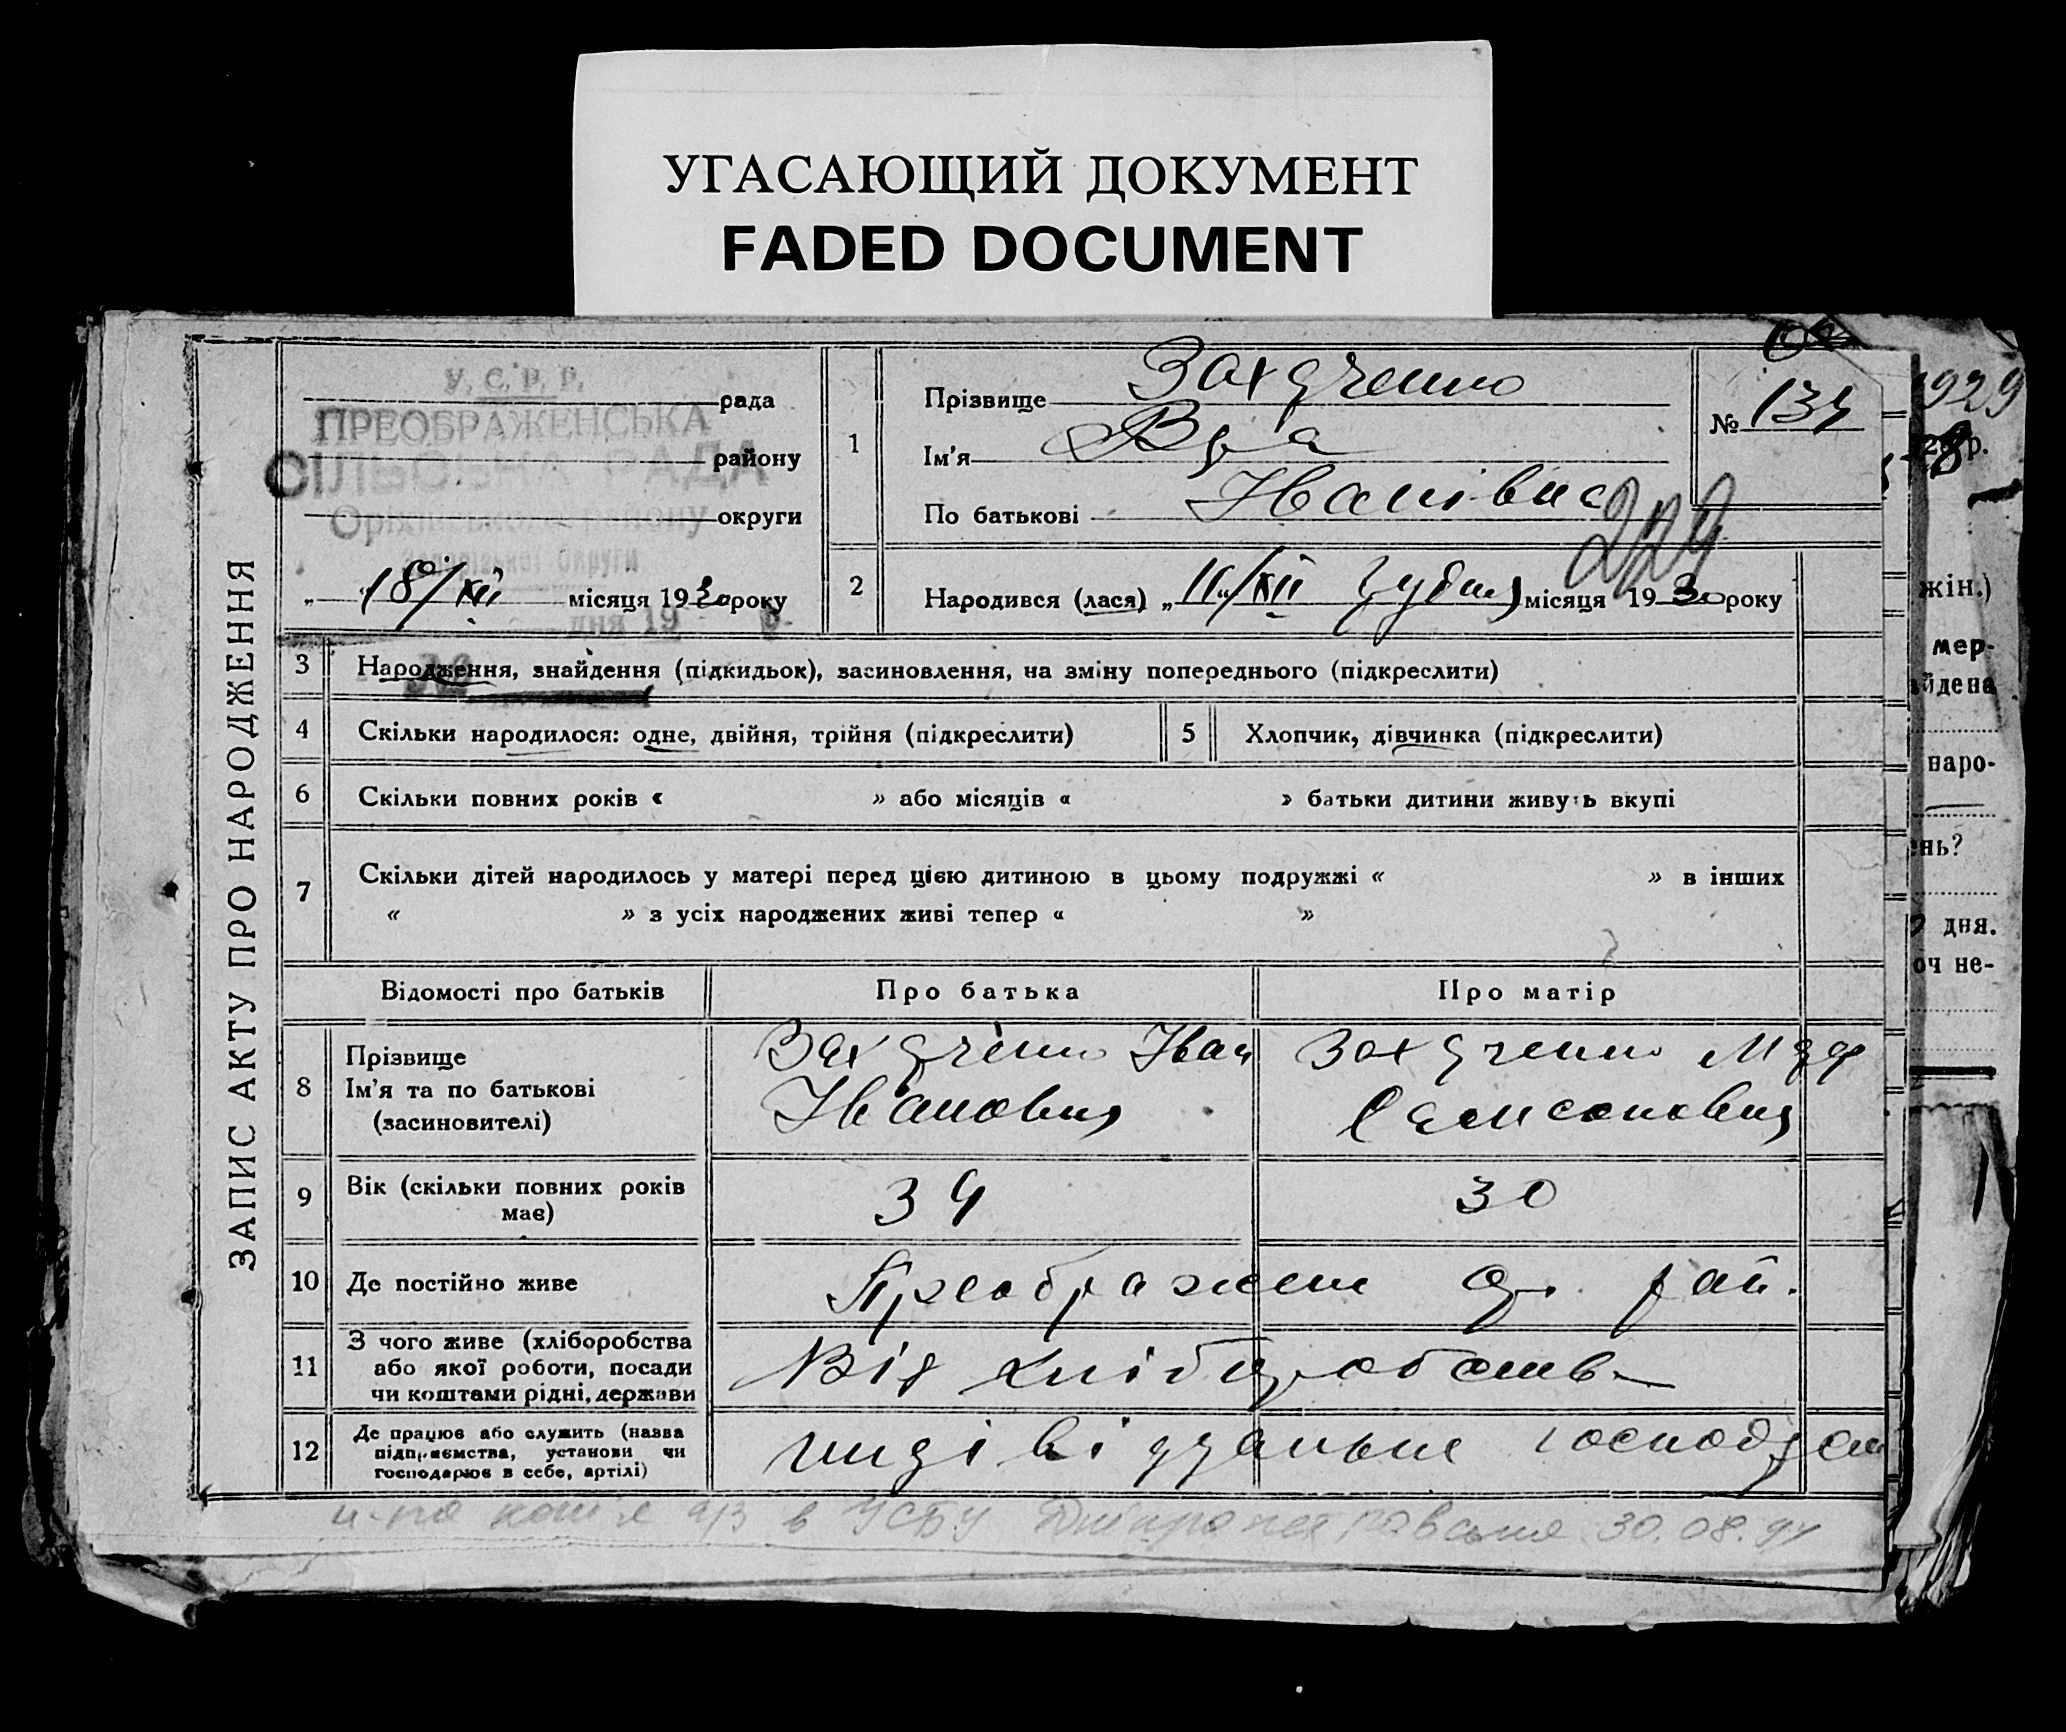 УГАСАЮЩИЙ ДОКУМЕНТ
FADED DOCUMENT
ЗАПИС АКТУ ПРО НАРОДЖЕННЯ
У. С. Р. Р.
рада
ПРЕОБРАЖЕНСЬКА
району
СІЛЬСЬКА РАДА
округи
Оріхівського району
Запорізької округи
„ 18/XII місяця 1930 року
дня 19
1
Прізвище
Ім'я
По батькові Іванівна
№ 134
2
Народився (лася) „ 11/XII місяця 1930 року
3 Народження, знайдення (підкидьок), засиновлення, на зміну попереднього (підкреслити)
4 Скільки народилося: одне, двійня, трійня (підкреслити)
5 Хлопчик, дівчинка (підкреслити)
6 Скільки повних років « » або місяців « » батьки дитини живуть вкупі
7 Скільки дітей народилось у матері перед цією дитиною в цьому подружжі « » в інших
« » з усіх народжених живі тепер « »
Відомості про батьків
Про батька
Про матір
8 Прізвище
Ім'я та по батькові
(засиновителі)
Іван
Іванович
Самсоновна
9 Вік (скільки повних років
має)
34
30
10 Де постійно живе
рай.
11 З чого живе (хліборобства
або якої роботи, посади
чи коштами рідні, держави
Від
12 Де працює або служить (назва
підприємства, установи чи
господарює в себе, артілі)
30.08.94
1929
жін.)
мер-
айдена
наро-
ень?
дня.
оч не-